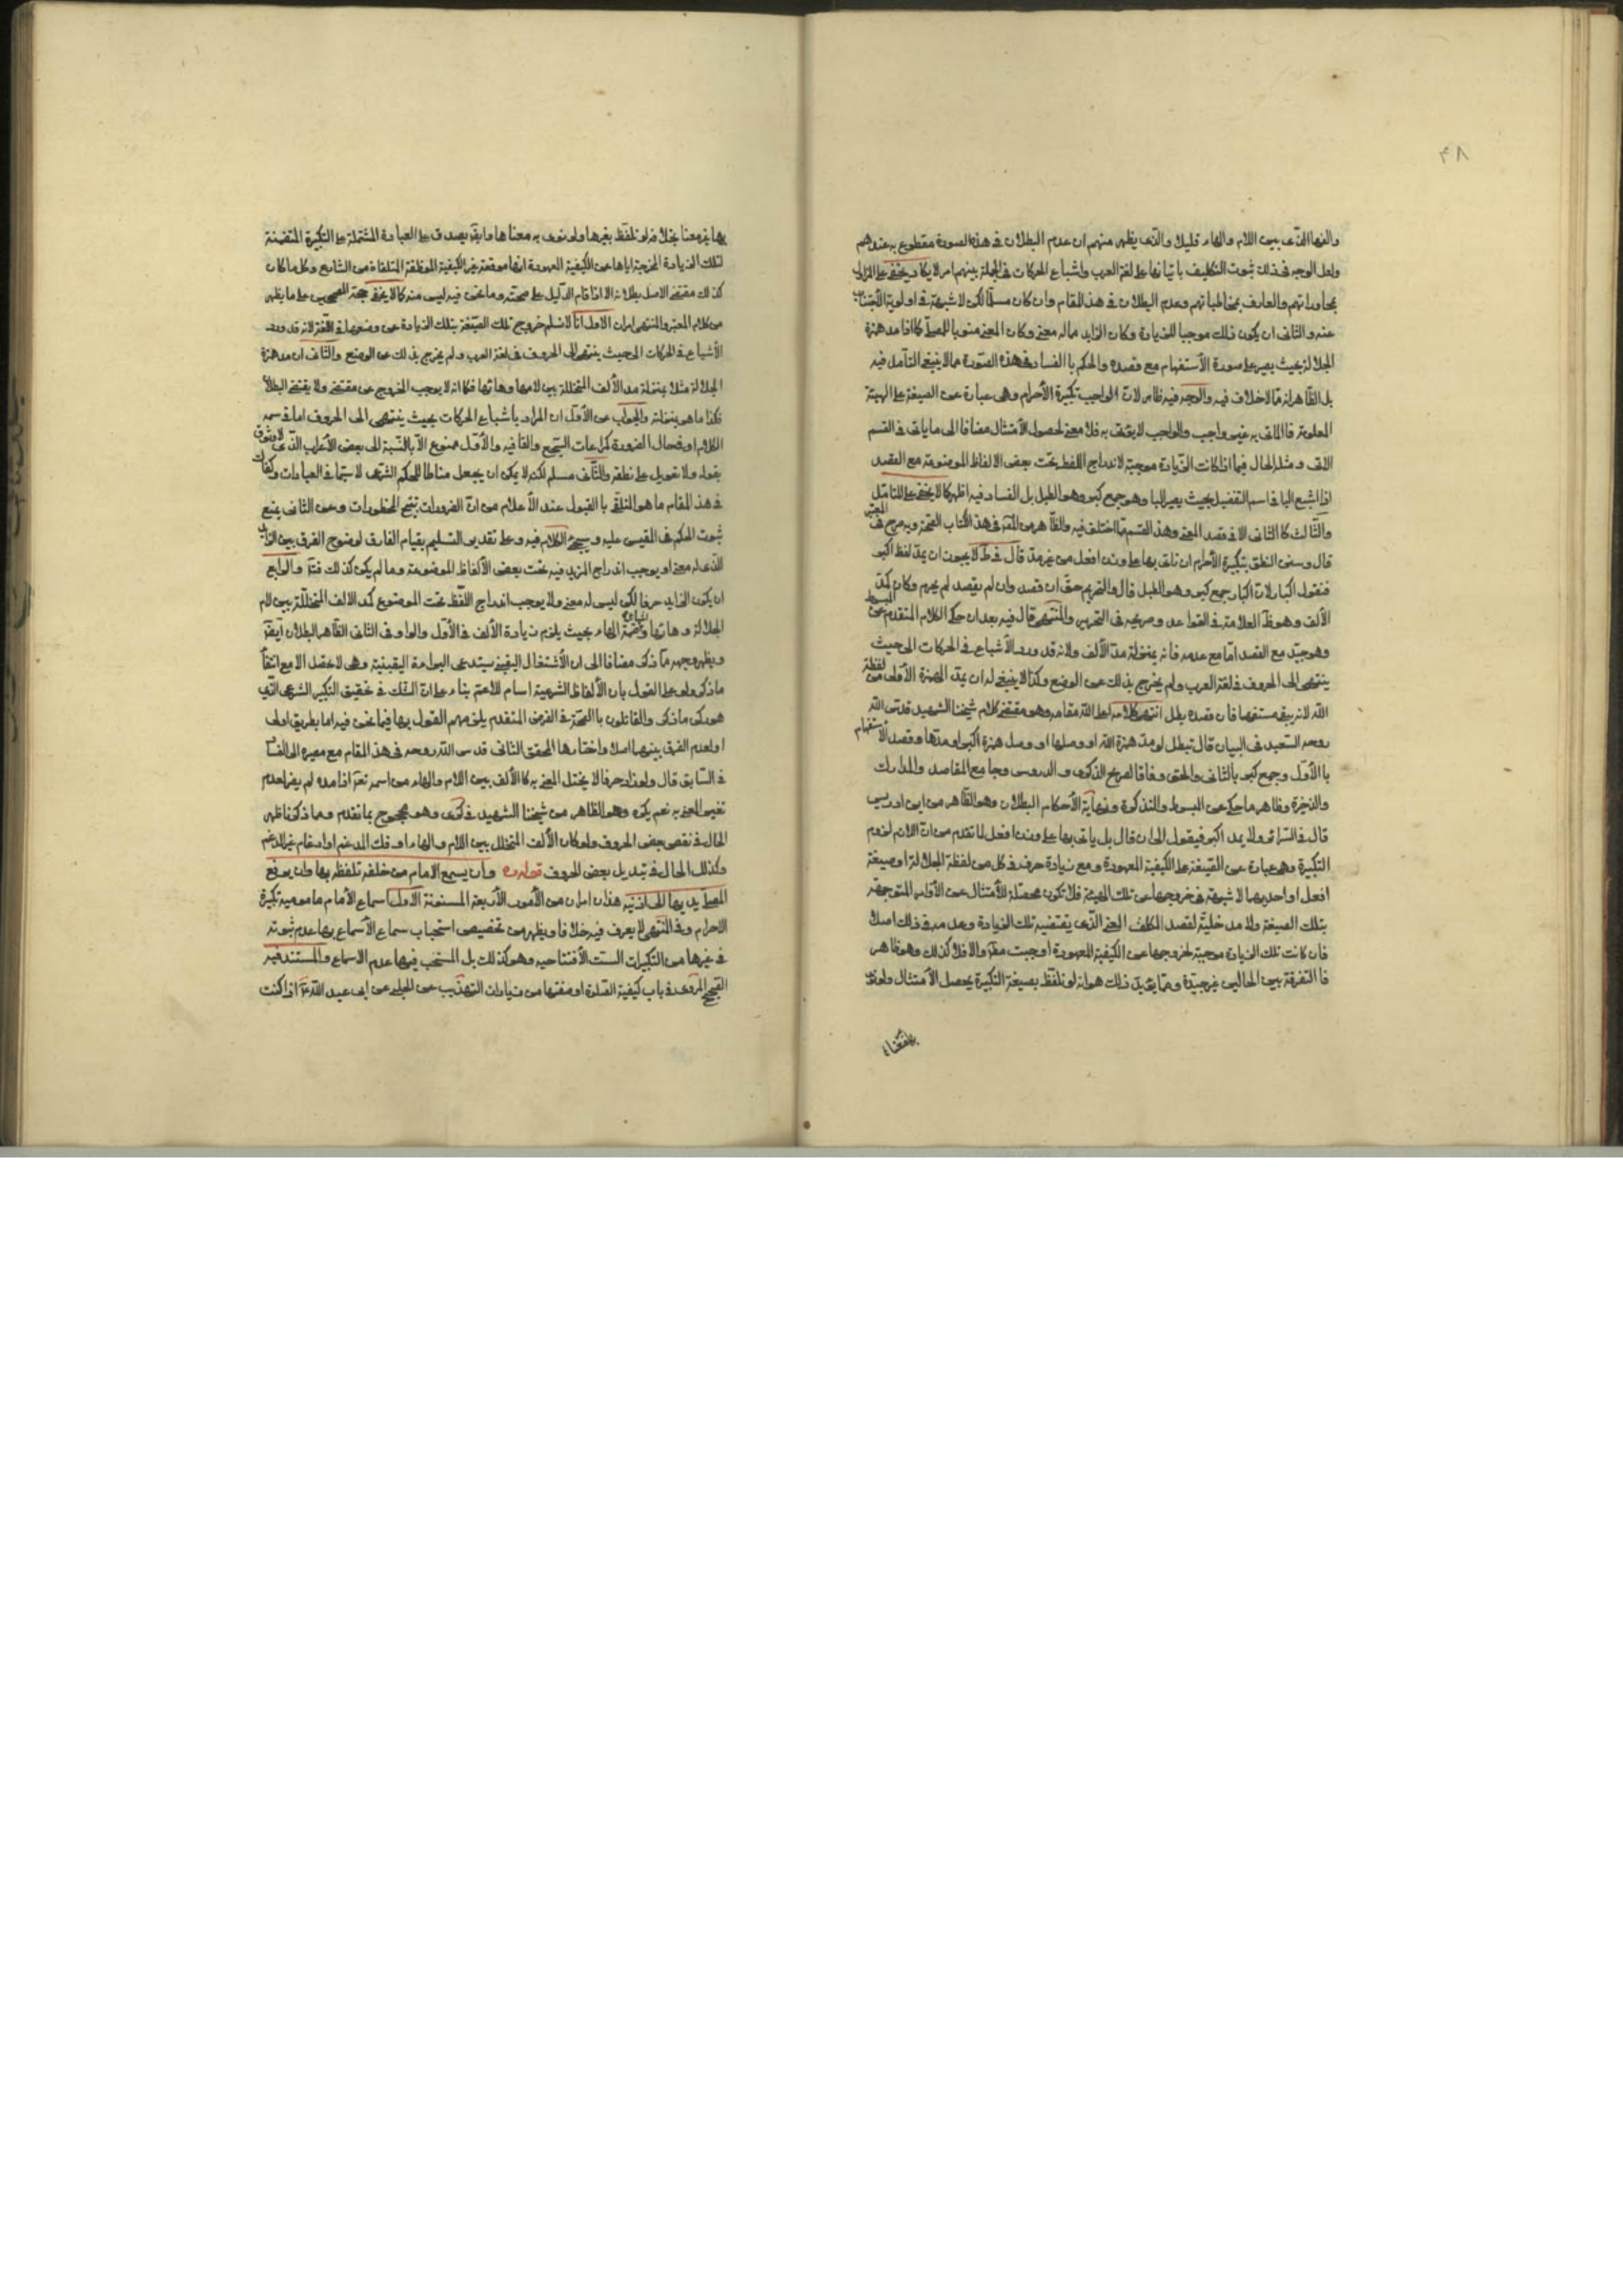 ۴۸
ولعل الوجه في ذلك ثبوت التكليف باتيانها على لغة العرب واشباع الحركات في الجملة بينهم امر لا يكاد يخفى على
بمحاوراتهم والعارف بمخاطباتهم وعدم البطلان في هذا المقام وان كان مسلما لكن لا شبهة في اولوية الاجتناب
عنه والثاني ان يكون ذلك موجبا للزيادة وكان الزايد ماله معنى وكان المعنى منويا للمصلي كما اذا مد همزة
الجلالة بحيث يصير على صورة الأستفهام مع قصده والحكم بالفساد في هذه الصورة مما لا ينبغي التأمل فيه
بل الظاهر انه مما لا خلاف فيه والوجه فيه ظاهر لان الواجب تكبيرة الأحرام وهي عبارة عن الصيغة على الهيئة
المعلومة فالماتى به غير واجب والواجب لا يؤتى به فلا معنى لحصول الأمتثال مضافا الى ما ياتى في القسم
الاتى ومثله الحال فيما اذا كانت الزيادة موجبة لاندراج اللفظ تحت بعض الالفاظ الموضوعة مع القصد
اذا اشبع البا في اسم التفضيل بحيث يصير اكبار وهو جمع كبر وهو الطبل بل الفساد فيه اظهر كما لا يخفى على المتأمل
والثالث كالثاني الا في قصد المعنى وهذا القسم مما اختلف فيه والظاهر من المص في هذا الكتاب الصحة وبه صرح في المعتبر
قال وسنن النطق بتكبيرة الأحرام ان تاتى بها على وزن افعل من غير مد قال في ط لا يجوز ان يمد لفظ اكبر
فتقول اكبار لان اكبار جمع كبر وهو الطبل قال والتحريم حق ان قصد وان لم يقصد لم يحرم وكان كمد
الألف وهو ظ العلامة في القواعد وصريحه في التحرير والمنتهى قال فيه بعد ان حكى الكلام المتقدم عن المبسوط
وهو جيد مع القصد اما مع عدمه فانه بمنزلة مد الألف ولانه قد ورد الأشباع في الحركات الى حيث
ينتهى الى الحروف في لغة العرب ولم يخرج بذلك عن الوضع وكذا لا ينبغي له ان يمد الهمزة الأولى من لفظة
الله لانه يبقى مستفهما فان قصده بطل انتهى كلامه اعلى الله مقامه وهو مقتضى كلام شيخنا الشهيد قدس الله
روحه السعيد في البيان قال تبطل لو مد همزة الله او وصلها او وصل همزة اكبر او مدها وقصد الأستفهام
بالأول وجمع كبر بالثاني والحق وفاقا لصريح الذكرى والدروس وجامع المقاصد والمدارك
والذخيرة وظاهر ما حكى عن المبسوط والتذكرة ونهاية الأحكام البطلان وهو الظاهر من ابن ادريس
قال في السرائر ولا يمد اكبر فيقول اكبار قال بل ياتى بها على وزن افعل لما تقدم من ان اللازم
التكبيرة وهي عبارة عن الصيغة على الكيفية المعهودة ومع زيادة حرف في كل من لفظة الجلالة او صيغة
افعل او احديهما لا شبهة في خروجها عن تلك الهيئة فلا تكون محصلة للأمتثال عن الأوامر المتوجهة
بتلك الصيغة ولا مدخلية لقصد المكلف المعنى الذى يقتضيه تلك الزيادة وعدمه في ذلك اصلا
فان كانت تلك الزيادة موجبة لخروجها عن الكيفية المعهودة اوجبت مطلقا والا فلا كذلك وهو ظاهر
فالتفرقة بين الحالين غير جيدة ومما يؤيد ذلك هو انه لو تلفظ بصيغة التكبيرة يحصل الأمتثال ولو لم
بها غير معنا بخلاف لو تلفظ بغيرها ولو نوى به معناها يصدق على العبادة المشتملة على التكبيرة المتضمنة
لتلك الزيادة المخرجة اياها عن الكيفية المعهودة انها موقعة غير الكيفية الموظفة المتلقاة من الشارع وكل ما كان
كذلك مقتضى الاصل بطلانه الا اذا قام الدليل على صحته وما نحن فيه ليس منه كما لا يخفى حجة المصححين على ما يظهر
من كلام المعتبر والمنتهى امران الاول انا لا نسلم خروج تلك الصيغة بتلك الزيادة عن وضعها في اللغة لانه قد ورد
الأشباع في الحركات الى حيث ينتهى الى الحروف في لغة العرب ولم يخرج بذلك عن الوضع والثاني ان مد همزة
الجلالة مثلا بمنزلة مد الألف المتخللة بين لامها وهائها فكما انه لا يوجب الخروج عن مقتضى ولا يقتضى البطلان
فكذا ما هو بمنزلته والجواب عن الأول ان المراد بأشباع الحركات بحيث ينتهى الى الحروف اما في سعة
الكلام او في حال الضرورة كمراعات السجع والقافيه والأول ممنوع الا بالنسبة الى بعض الأعراب الذى لا وثوق
بقوله ولا تعويل على نطقه والثاني مسلم لكنه لا يمكن ان يجعل مناطا للحكم الشرعى لا سيما في العبادات وكفاك
في هذا المقام ما هو المتلقى بالقبول عند الأعلام من ان الضرورات تبيح المحظورات وعن الثاني بمنع
ثبوت الحكم في المقيس عليه وسيجئ الكلام فيه وعلى تقدير التسليم بقيام الفارق لوضوح الفرق بين الزايد
الذى له معنى او يوجب اندراج المزيد فيه تحت بعض الألفاظ الموضوعة وما لم يكن كذلك والرابع
ان يكون الزايد حرفا لكن ليس له معنى ولا يوجب اندراج اللفظ تحت الموضوع كمد الالف المتخللة بين لام
الجلالة وهائها واشباع ضمة الهاء بحيث يلزم زيادة الألف في الأول والواو في الثاني الظاهر البطلان ايضا
ويظهر وجهه مما ذكر مضافا الى ان الأشتغال اليقينى يستدعى البراءة اليقينية وهي لا تحصل الا مع انتفاء
ما ذكر ولو على القول بان الألفاظ الشرعية اسام للأعم بناء على ان الشك في تحقيق التكبير الشرعى الذى
هو ركن ما ذكر والقائلون بالصحة في الفرض المتقدم يلزمهم القول بها فيما نحن فيه اما بطريق اولى
او لعدم الفرق بينهما اصلا واختارها المحقق الثاني قدس الله روحه في هذا المقام مع مصيره الى الفساد
في السابق قال ولو زاد حرفا لا يختل المعنى به كالألف بين اللام والهاء من اسمه تعالى اذا مده لم يضر لعدم
تغير المعنى به نعم يكره وهو الظاهر من شيخنا الشهيد في كرى وهو محجوج بما تقدم ومما ذكرنا ظهر
الحال في نقص بعض الحروف ولو كان الألف المتخلل بين اللام والهاء او فك المدغم او ادغام غير المدغم
وكذلك الحال في تبديل بعض الحروف قوله ره وان يسمع الامام من خلفه تلفظه بها وان يرفع
المصلي يديه بها الى اذنيه هذان امران من الأمور الأربعة المسنونة الاول اسماع الأمام مامومية تكبيرة
الاحرام وفي المنتهى لا يعرف فيه خلافا ويظهر من تخصيص استحباب الأسماع بها عدم ثبوته
في غيرها من التكبيرات الست الأفتتاحيه وهو كذلك بل المستحب فيها عدم الاسماع والمستند فيه
الصحيح المروى في باب كيفية الصلوة او صفتها من زيادات التهذيب عن الحلبى عن ابى عبد الله ع اذا كنت